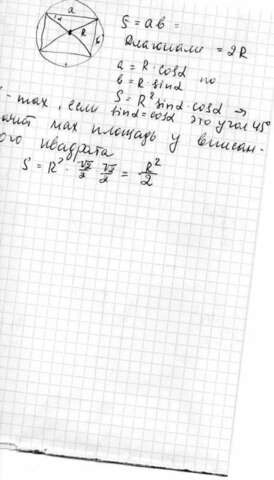 a
α
R
b
S = ab =
Диагонали = 2R
a = R·cosα но
b = R·sinα
S = R² sinα·cosα →
- max, если sinα=cosα это угол 45°
ачит мах площадь у вписан-
ого квадрата
S = R² · √2/2 · √2/2 = R²/2